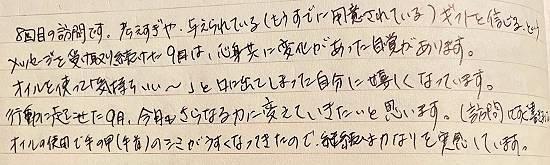 8回目の訪問です。考えすぎや、与えられている(もうすでに用意されている)ギフトを信じる、という
メッセージを受け取り続けた9月は、心身共に変化があった自覚があります。
オイルを使って「気持ちいい〜」と口に出てしまった自分に嬉しくなっています。
行動に走らせた9月、今月もさらなる力に変えていきたいと思います。(訪問)
オイルの使用で手の甲(左右)のシミがうすくなってきたので、継続は力なりを実感しています。